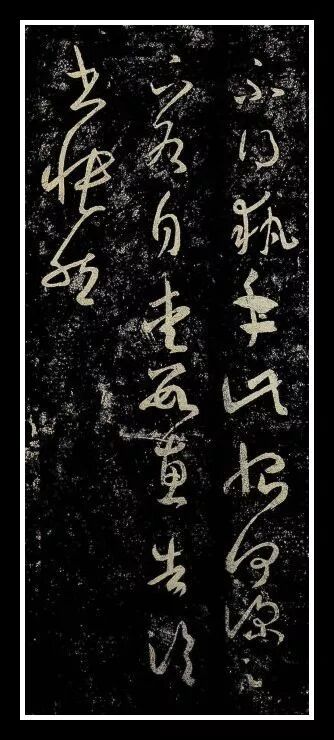 不得執手此恨何深足
下各自愛數惠告臨
書悵然